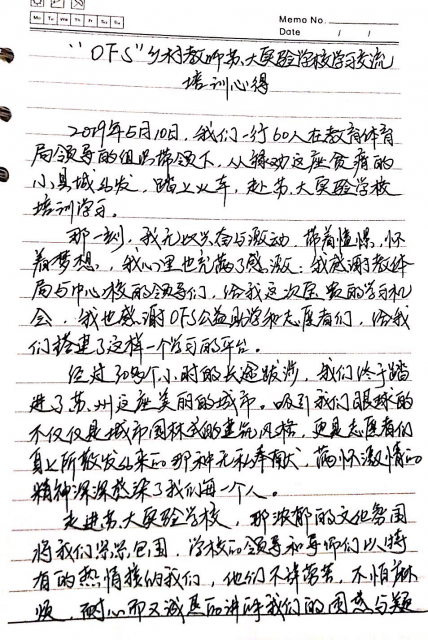 Memo No.
Mo Tu We Th Fr Sa Su
Date / /
"OFS"乡村教师苏大实验学校学习交流
培训心得
2019年5月10日,我们一行60人在教育体育
局领导的组织带领下,从 这座贫瘠的
小县城出发,踏上火车,赴苏大实验学校
培训学习。
那一刻,我无以兴奋与激动,带着憧憬,怀
着梦想,我心里也充满了感激:我感谢教体
局与中心校的领导们,给我这次宝贵的学习机
会,我也感谢OFS公益助学和志愿者们,给我
们搭建了这样一个学习的平台。
经过 个小时的长途跋涉,我们终于踏
进了苏州这座美丽的城市。吸引我们眼球的
不仅仅是城市园林式的建筑风格,更是志愿者们
身上所散发出来的那种无私奉献,满怀激情的
精神深深感染了我们每一个人。
走进苏大实验学校,那浓郁的文化氛围
将我们紧紧包围,学校的领导和导师们以特
有的热情接待我们,他们不辞劳苦,不怕麻
烦,耐心而又诚恳的讲解我们的困惑与疑